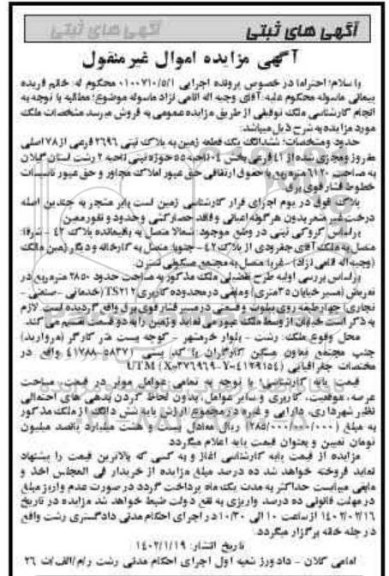 آگهی های ثبتی
آگهی های ثبتی
آگهی مزایده اموال غیرمنقول
با سلام؛ احتراما در خصوص پرونده اجرایی ۰۱۰۰۷۱۰/۵/۱ محکوم له: خانم فریده
محکوم علیه: آقای وجیه اله موضوع: مطالبه با توجه به
انجام کارشناسی ملک توقیفی از طریق مزایده عمومی به فروش میرسد مشخصات ملک
مورد مزایده به شرح ذیل میباشد:
حدود ومشخصات: ششدانگ یک قطعه زمین به پلاک ثبتی ۲۶۹۶ فرعی از ۷۸ اصلی
مفروز ومجزی شده از ۴۱ فرعی بخش ۴ ناحیه حوزه ثبتی ناحیه ۲ رشت استان گیلان
به مساحت مترمربع با حقوق ارتفاقی حق عبور املاک مجاور و حق عبور تاسیسات
خطوط فشار قوی برق
پلاک فوق در یوم اجرای قرار کارشناسی زمین است بایر منجر به چندین اصله
درخت غیر مثمر بدون هرگونه اعیانی و فاقد حصارکشی وحدود و تقورمعین
براساس کروکی ثبتی در وضع موجود: شمالا متصل به باقیمانده پلاک ۴۲ - شرقا:
متصل به ملک آقای جفرودی از پلاک ۴۲ - جنوبا: متصل به کارخانه و دیگر زمین مالک
(وجیه اله) - غربا: متصل به مجتمع مسکونی
براساس بررسی اولیه طرح تفصیلی ملک مذکور به مساحت حدود ۲۸۵۰ مترمربع در
تعریض (مسیر خیابان ۳۵ متری) ومابقی در محدوده کاربری TS۲۱۲ (خدماتی - صنعتی -
تجاری) چهارطبقه روی پیلوت وقسمتی در مسیر فشار قوی برق واقع گردیده است لازم
به ذکر است خیابان از وسط ملک عبور می نماید و زمین را به دو قسمت تقسیم می کند.
محل وقوع ملک: رشت - بلوار خرمشهر - کوچه بیست متر کارگر (مروارید)
جنب مجتمع تعاون مسکن کارگران با کد پستی ۵۸۳۷۱-۴۱۷۸۸ واقع در
مختصات جغرافیایی UTM (X=۳۷۶۹۶۹-Y=۴۱۲۹۱۵۴)
قیمت پایه کارشناسی: با توجه به تمامی عوامل موثر در قیمت، مساحت
عرصه، موقعیت، کاربری و سایر عوامل، بدون لحاظ کردن بدهی های احتمالی
نظیر شهرداری، دارایی و غیره در مجموع ارزش پایه شش دانگ از ملک مذکور
به مبلغ ریال معادل هشت میلیارد پانصد میلیون
تومان تعیین و بعنوان قیمت پایه اعلام میگردد
مزایده از قیمت پایه کارشناسی آغاز و به کسی که بالاترین قیمت را پیشنهاد
نماید فروخته خواهد شد ده درصد مبلغ مزایده از خریدار فی المجلس اخذ و
مابقی میبایست حداکثر به مدت یک ماه پرداخت گردد در صورت عدم واریز مبلغ
در مهلت قانونی ده درصد واریزی به نفع دولت ضبط خواهد شد مزایده در تاریخ
۱۴۰۲/۰۲/۱۶ از ساعت ۱۰ الی ۱۰/۳۰ در اجرای احکام مدنی دادگستری رشت واقع
در جله خانه برگزار میگردد.
تاریخ انتشار: ۱۴۰۲/۱/۱۹
امامی گلان - دادورز شعبه اول اجرای احکام مدنی رشت ر/م/الف/ث ۲۶